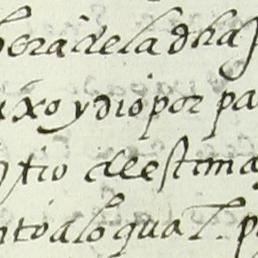 bera de la dha
uxo y dio por pa
tio de estima
nto a lo qual p